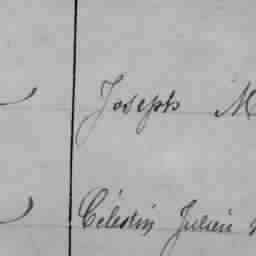 Joseph M
Célestin Julien